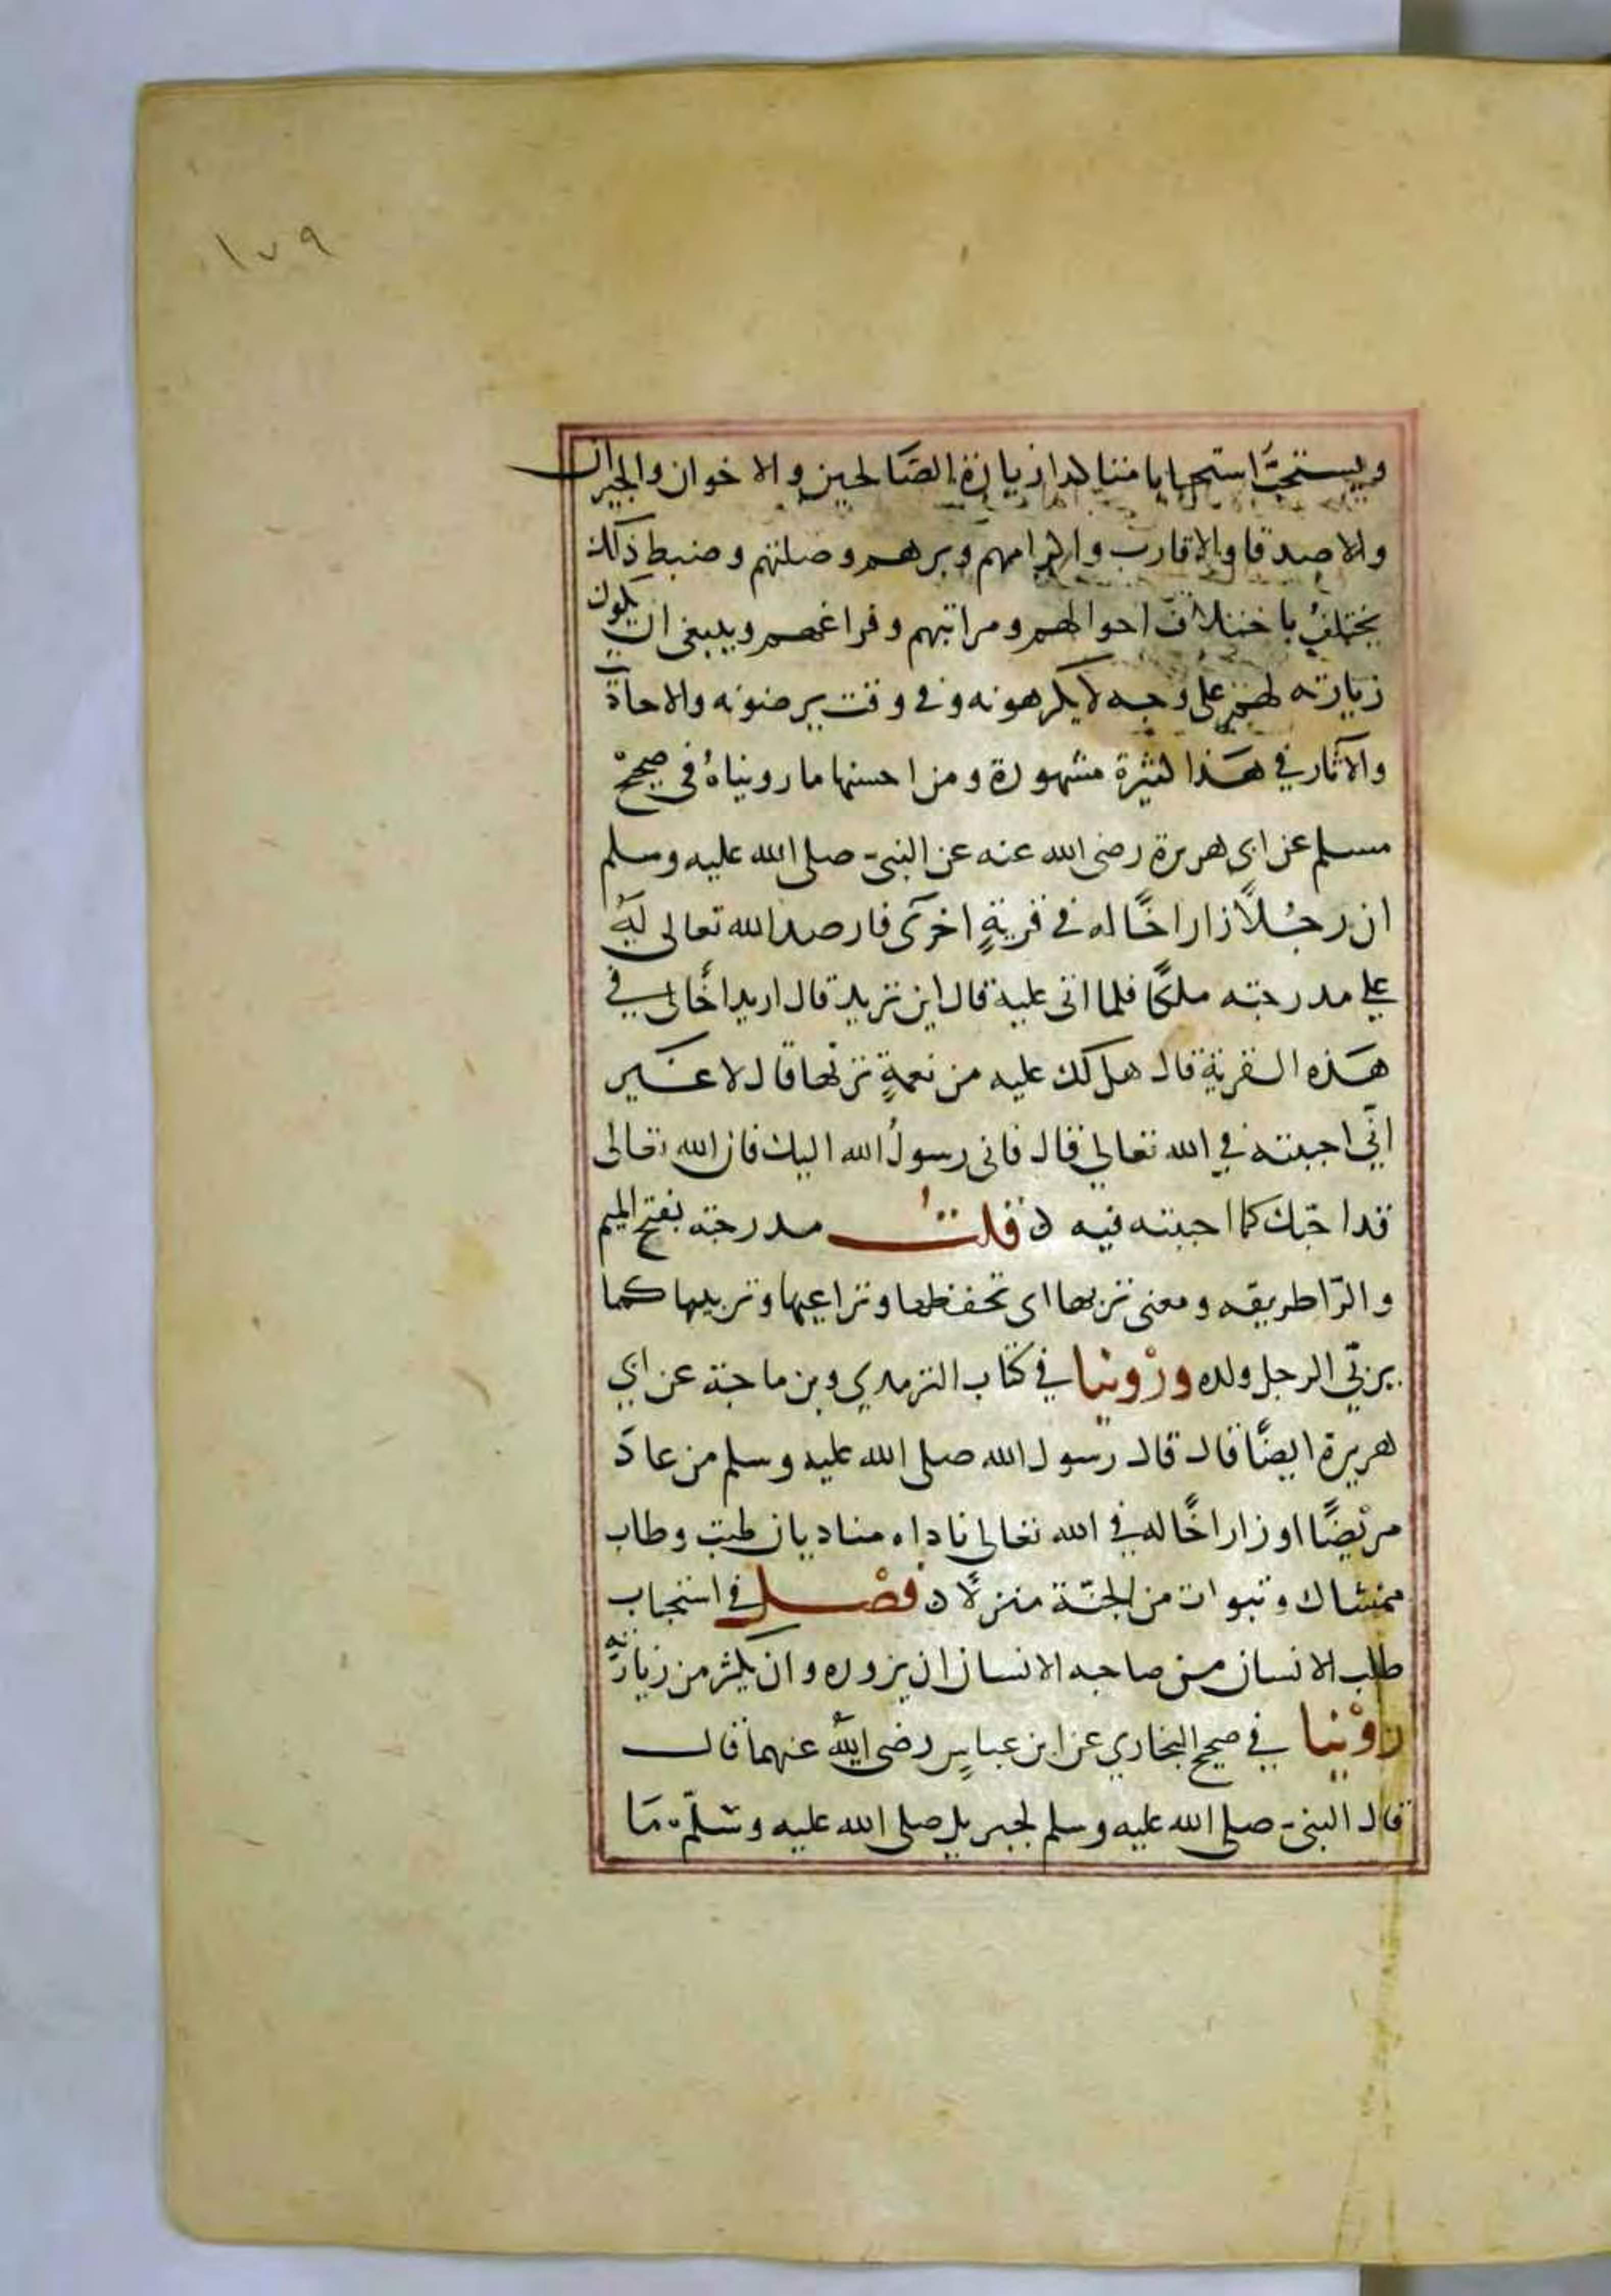 ١٧٩
ويستحبُّ استحبابا متاكدا زيارة الصَالحين والاخوان والجيران
والاصدقا والاقارب واكرامهم وبرهم وصلتهم وضبط ذلك
يختلفُ باختلاف احوالهم ومراتبهم وفراغهم وينبغى ان يكون
زيارته لهم على وجه لا يكرهونه وفى وقت يرضونه والاحاة
والآثار في هَذا كثيرة مشهورة ومن احسنها ما رويناهُ فى صحيحْ
مسلم عن ابى هريرة رضى الله عنه عن النبى صلى الله عليه وسلم
ان رجُلاً زار اخًا له فى قريةٍ اخرَى فارصد الله تعالى لَهُ
على مدرجته ملكًا فلما اتى عليه قال اين تريد قال اريد اخًا لى في
هَذه القرية قال هل لك عليه من نعمةٍ تربها قال لا غَير
انّي احببته في الله تعالي قال فانى رسولُ الله اليك فان الله تعالى
قد احبّك كما احببته فيه ن قلتُ مدرجته بفتح الميم
والرّا طريقه ومعنى تربها اى تحفظها وتراعيها وتربيها كما
يربّي الرجل ولده ورْوينا في كتاب الترمدي وبن ماجة عن ابي
هريرة ايضًا قال قال رسول الله صلى الله عليه وسلم من عادَ
مريْضًا او زار اخًا له في الله تعالى ناداه مناد بان طبت وطاب
ممشاك وتبوات من الجنّة منزلًا ن فصْل في استحباب
طلب الانسان من صاحبه الانسان ان يزوره وان يكثر من زيارته
رْوينا في صحيح البخاري عن ابن عباسٍ رضى اللهُ عنهما قال
قال النبى صلى الله عليه وسلم لجبريل صلى الله عليه وسَلّم مَا